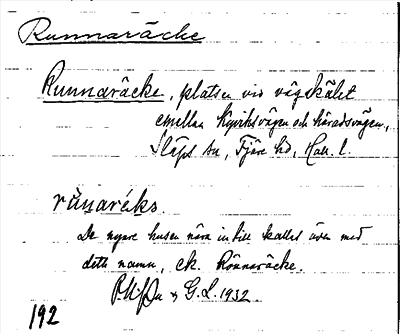 Runnaräcke
Runnaräcke, platsen vid vägskälet
emellan Kyrkvägen och häradsvägen,
Släps sn, Fjäre hd, Hall. l.
rùnaréks.
De nyare husen nära intill kallas även med
detta namn, ek. Rönnaräcke.
G. L. 1932
192